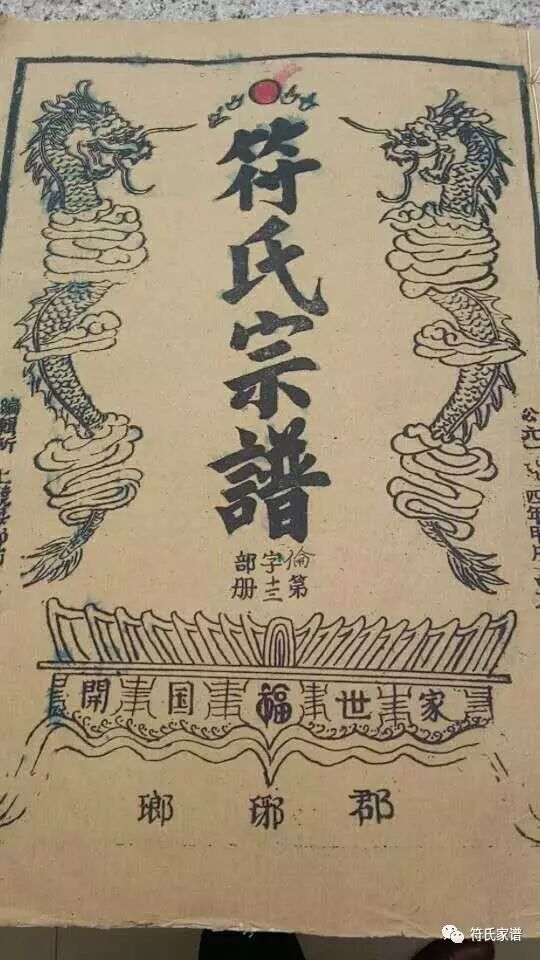 符氏宗譜
倫字部
第十三册
公元一 四年甲戌
編輯所
開国福世家
瑯琊郡
符氏家谱